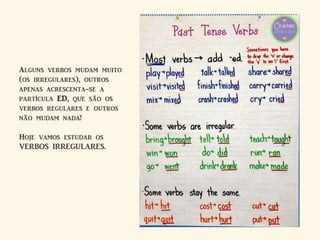 Alguns verbos mudam muito
(os irregulares), outros
apenas acrescenta-se a
partícula ED, que são os
verbos regulares e outros
não mudam nada!
Hoje vamos estudar os
VERBOS IRREGULARES.
Past Tense Verbs
• Most verbs → add -ed.
Sometimes you have
to drop the "e" or change
the "y" to an "i" first!
play→played talk→talked share→shared
visit→visited finish→finished carry→carried
mix→mixed crash→crashed cry→cried
• Some verbs are irregular.
bring→brought tell→told teach→taught
win→won do→did run→ran
go→went drink→drank make→made
• Some verbs stay the same.
hit→hit cost→cost cut→cut
quit→quit hurt→hurt put→put